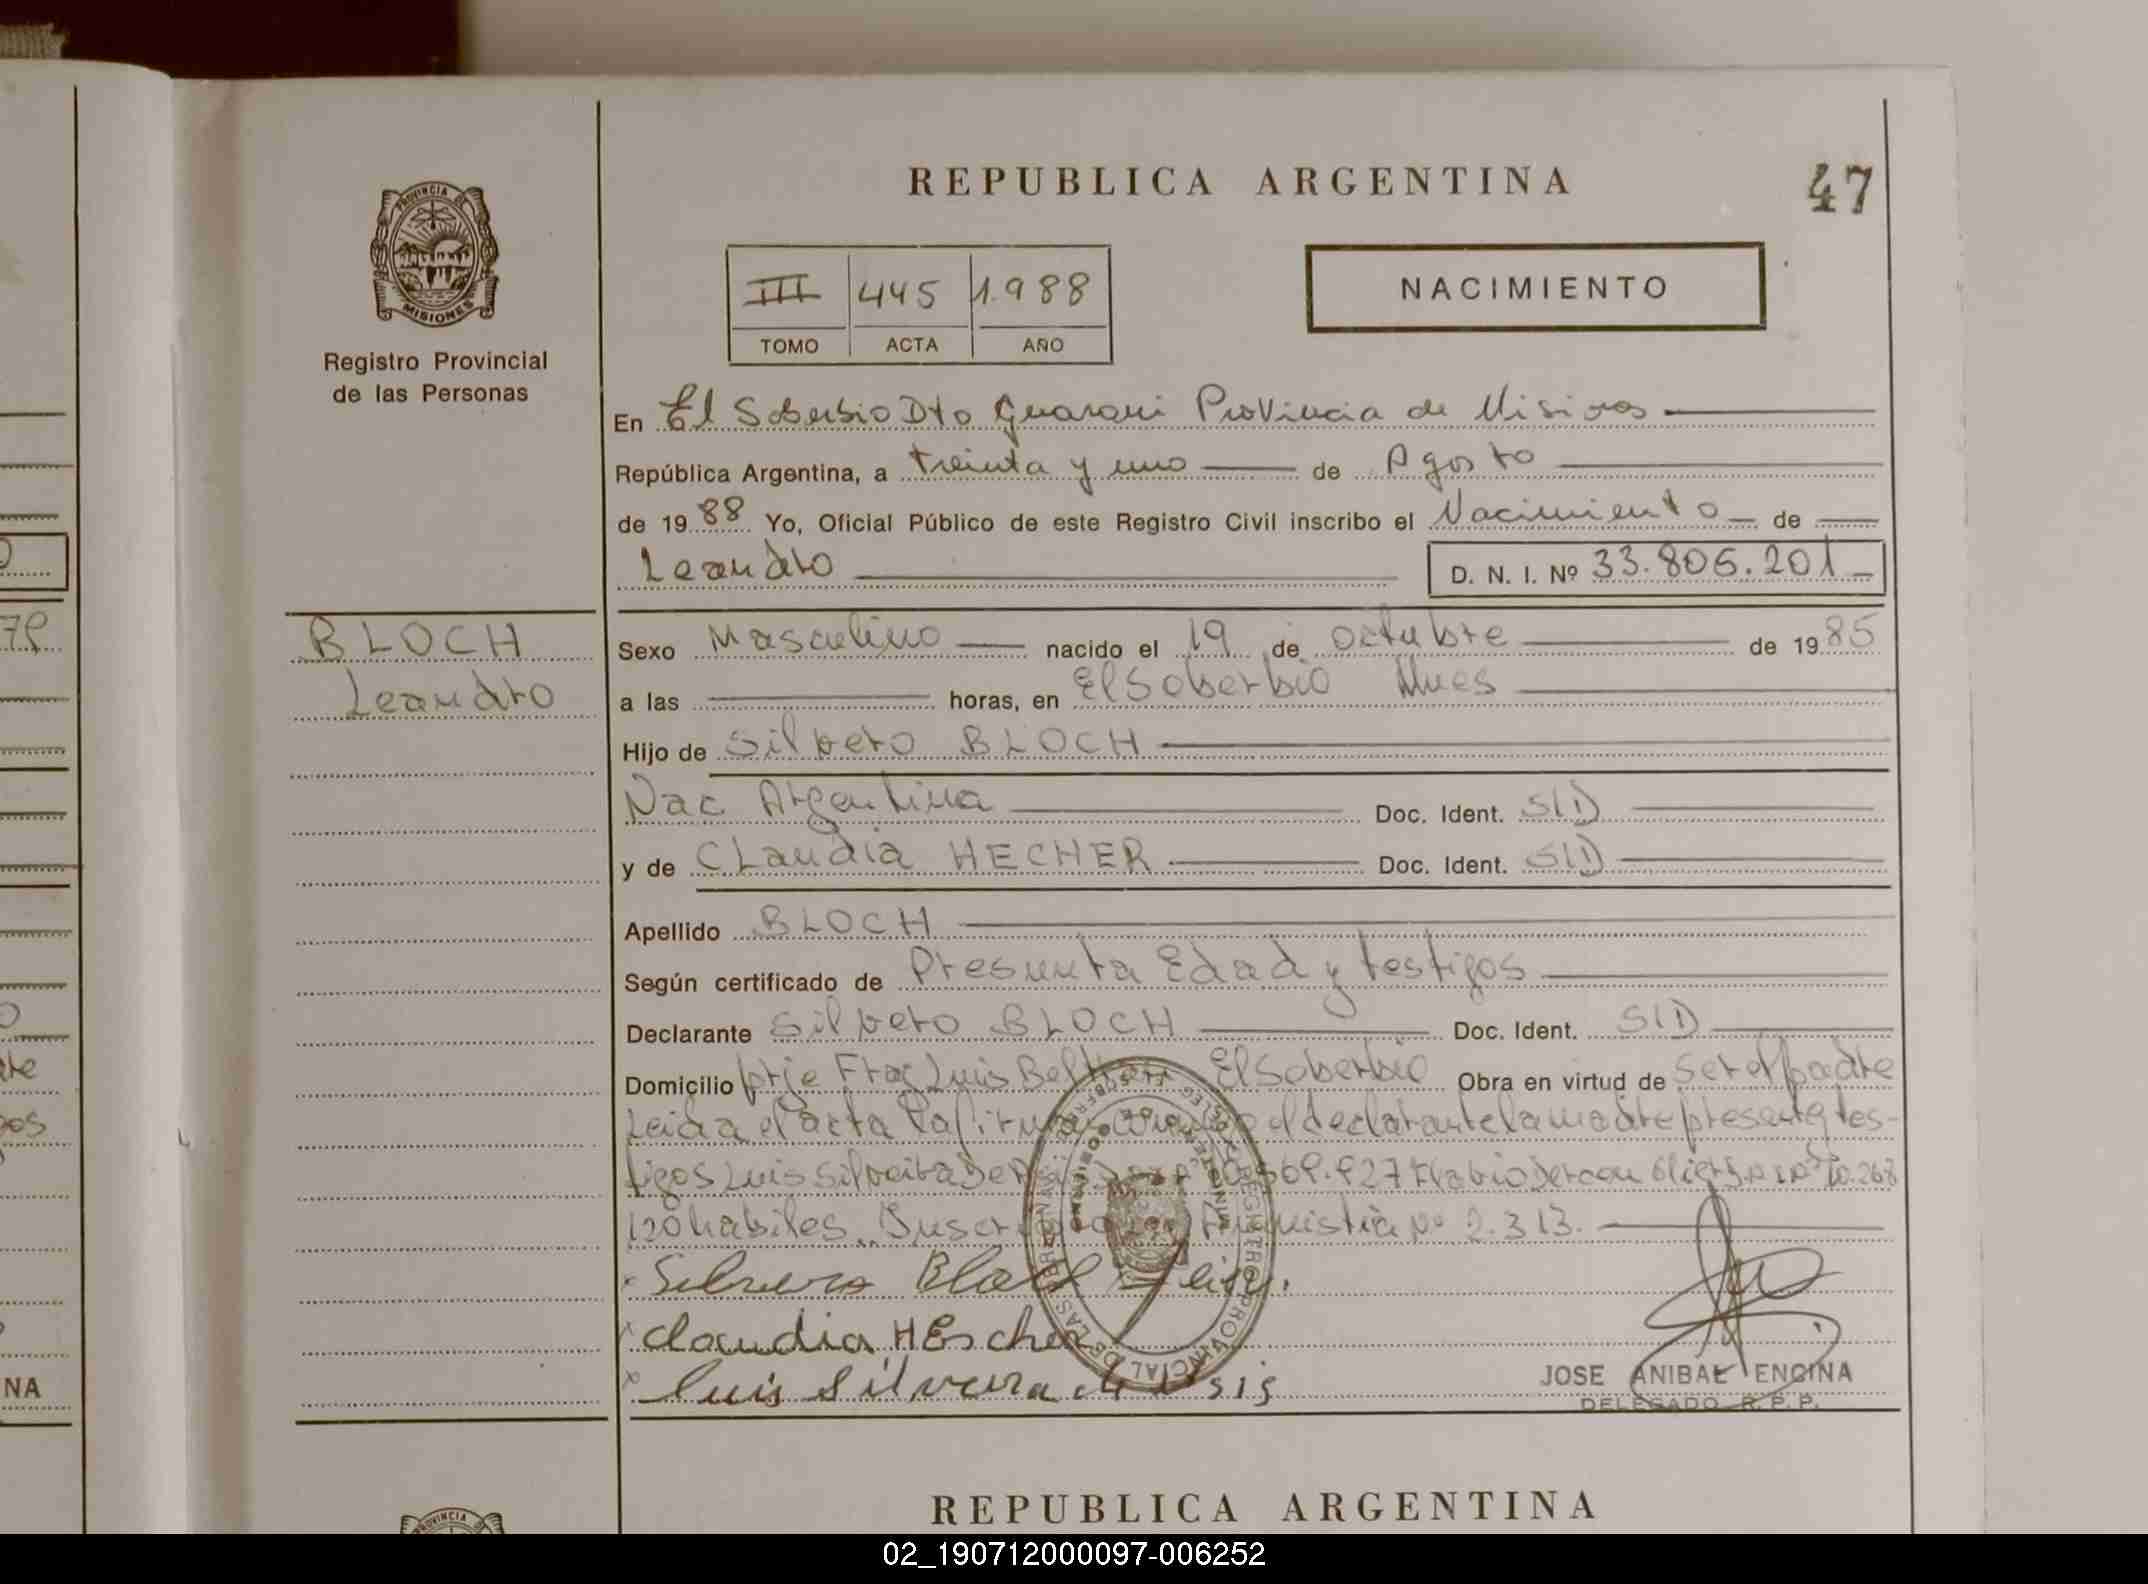 REPUBLICA ARGENTINA
47
PROVINCIA DE
MISIONES
Registro Provincial
de las Personas
III 445 1.988
TOMO ACTA AÑO
NACIMIENTO
En El Soberbio Dto Guarani Provincia de Misiones
República Argentina, a treinta y uno de Agosto
de 1988 Yo, Oficial Público de este Registro Civil inscribo el Nacimiento de
Leandro D. N. I. Nº 33.806.201
BLOCH
Leandro
Sexo Masculino nacido el 19 de octubre de 1985
a las horas, en El Soberbio Mnes
Hijo de Silvero BLOCH
Nac Argentina Doc. Ident. S/D
y de Claudia HECHER Doc. Ident. S/D
Apellido BLOCH
Según certificado de Presunta Edad y testigos
Declarante Silvero BLOCH Doc. Ident. S/D
Domicilio Prje Fray Luis Beltran El Soberbio Obra en virtud de ser el padre
Leida el acta la firman el declarante la madre presente tes-
tigos Luis Silveira De 10.268
120 habiles. Nº 2.313.
Claudia HEscher
Luis Silveira
JOSE ANIBAL ENCINA
DELEGADO R. P. P.
79
NA
REPUBLICA ARGENTINA
PROVINCIA
02_190712000097-006252